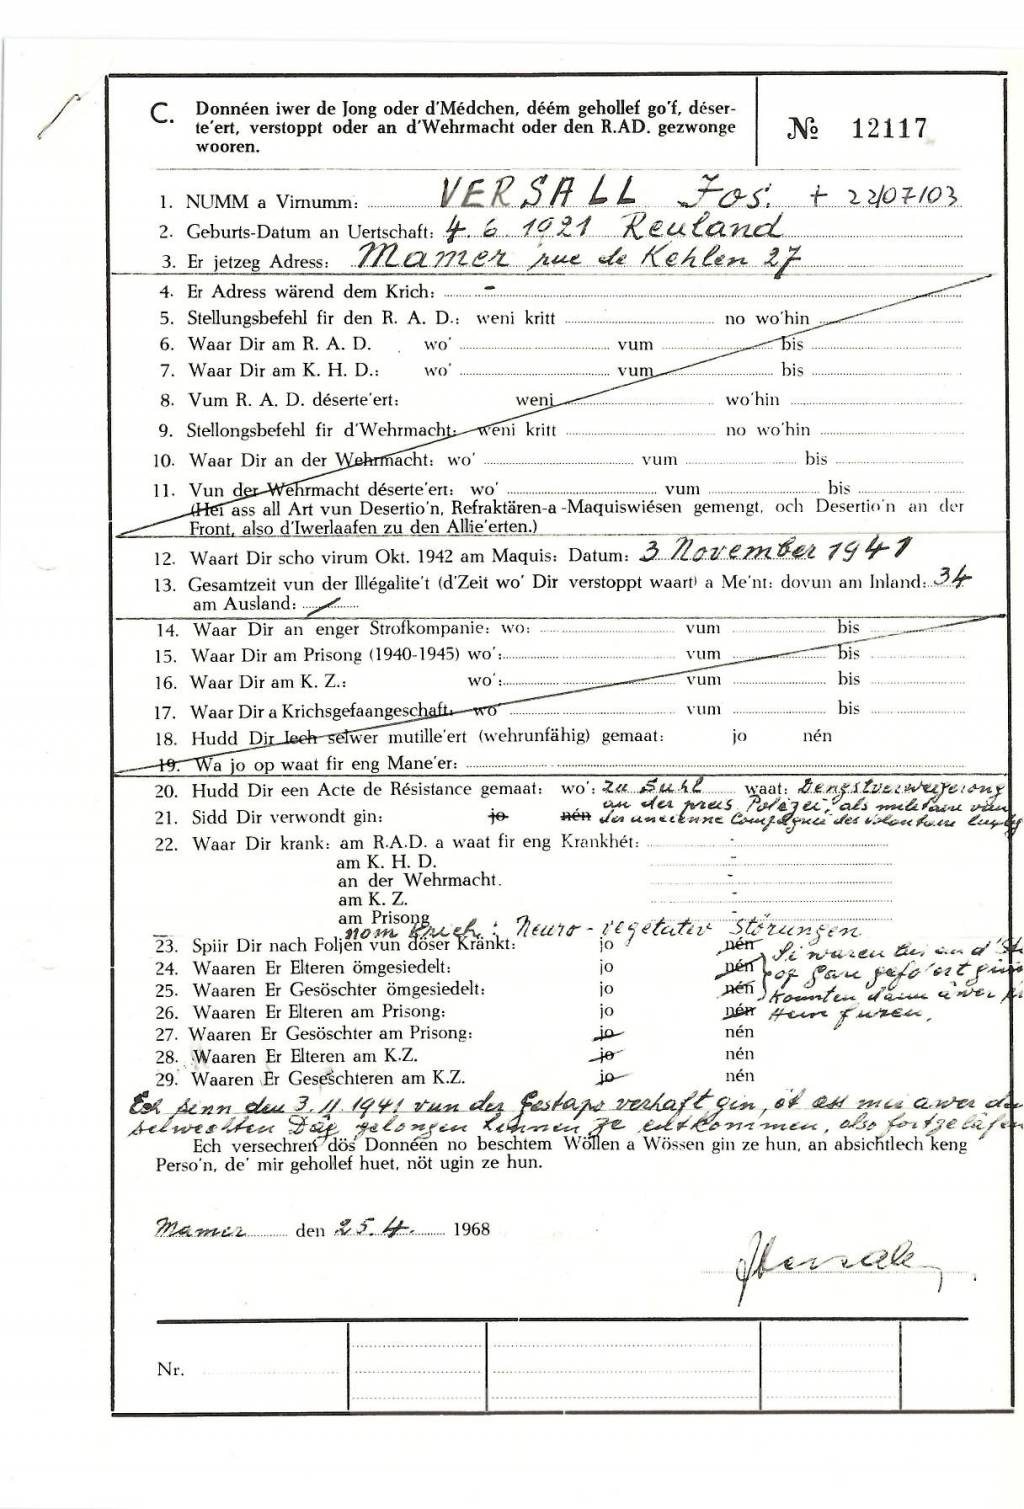 C. Donnéen iwer de Jong oder d'Médchen, déém gehollef go'f, déser-
te'ert, verstoppt oder an d'Wehrmacht oder den R.AD. gezwonge
wooren.
№ 12117
1. NUMM a Virnumm: VERSALL Jos: + 22/07/03
2. Geburts-Datum an Uertschaft: 4 6 1921 Reuland
3. Er jetzeg Adress: Mamer rue de Kehlen 27
4. Er Adress wärend dem Krich: -
5. Stellungsbefehl fir den R. A. D.: weni kritt no wo'hin
6. Waar Dir am R. A. D. wo' vum bis
7. Waar Dir am K. H. D.: wo' vum bis
8. Vum R. A. D. déserte'ert: weni wo'hin
9. Stellongsbefehl fir d'Wehrmacht: weni kritt no wo'hin
10. Waar Dir an der Wehrmacht: wo' vum bis
11. Vun der Wehrmacht déserte'ert: wo' vum bis
(Hei ass all Art vun Desertio'n, Refraktären-a -Maquiswiésen gemengt, och Desertio'n an der
Front, also d'Iwerlaafen zu den Allie'erten.)
12. Waart Dir scho virum Okt. 1942 am Maquis: Datum: 3 November 1941
13. Gesamtzeit vun der Illégalite't (d'Zeit wo' Dir verstoppt waart) a Me'nt: dovun am Inland: 34
am Ausland: /
14. Waar Dir an enger Strofkompanie: wo: vum bis
15. Waar Dir am Prisong (1940-1945) wo': vum bis
16. Waar Dir am K. Z.: wo': vum bis
17. Waar Dir a Krichsgefaangeschaft: wo' vum bis
18. Hudd Dir Iech selwer mutille'ert (wehrunfähig) gemaat: jo nén
19. Wa jo op waat fir eng Mane'er:
20. Hudd Dir een Acte de Résistance gemaat: wo': zu Suhl waat: Dengstverweigerong
an der preus. Polizei, als militaire vun
21. Sidd Dir verwondt gin: jo nén der ancienne Compagnie des volontaires
22. Waar Dir krank: am R.A.D. a waat fir eng Krankhét: -
am K. H. D. -
an der Wehrmacht. -
am K. Z.
am Prisong -
nom Krich: Neuro-vegetativ Störungen
23. Spiir Dir nach Foljen vun döser Kränkt: jo nén
24. Waaren Er Elteren ömgesiedelt: jo nén
25. Waaren Er Gesöschter ömgesiedelt: jo nén
26. Waaren Er Elteren am Prisong: jo nén
Si waren bis an d'
op gefo'ert
konnten dann äwer
Heem furen.
27. Waaren Er Gesöschter am Prisong: jo nén
28. Waaren Er Elteren am K.Z. jo nén
29. Waaren Er Geseschteren am K.Z. jo nén
Ech senn den 3.11.1941 vun der Gestapo verhaft gin, öt ass mir awer den
selwechten Dag gelongen kënnen ze entkommen, also fortgelafen
Ech versechren dös Donnéen no beschtem Wöllen a Wössen gin ze hun, an absichtlech keng
Perso'n, de' mir gehollef huet, nöt ugin ze hun.
Mamer den 25.4. 1968
Nr.